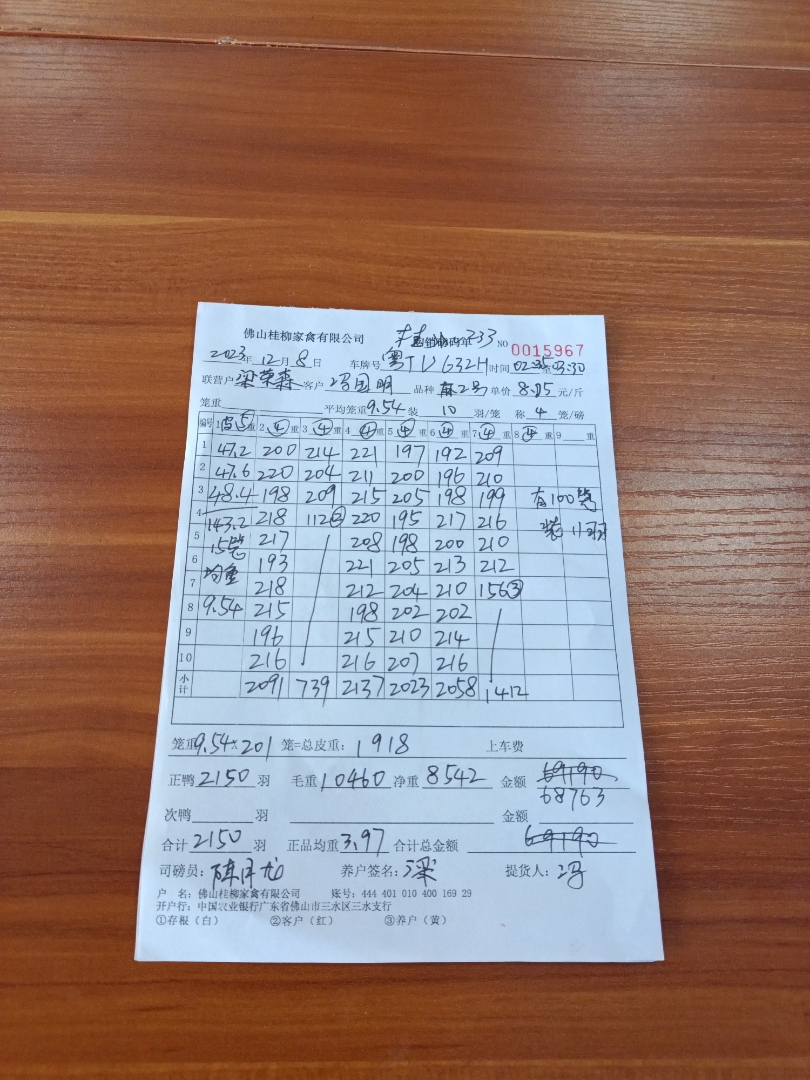 佛山桂柳家禽有限公司 233 NO 0015967
2023年12月8日 车牌号 粤TVG32H 时间 02:35至03:30
联营户 梁荣森 客户 冯国明 品种 2号 单价 8.05 元/斤
笼重 平均笼重 9.54 装 10 羽/笼 称 4 笼/磅
编号 1 皮⑤ 重 2 ④ 重 3 ④ 重 4 ④ 重 5 ④ 重 6 ④ 重 7 ④ 重 8 ④ 重 9 重
1 47.2 200 214 221 197 192 209
2 47.6 220 204 211 200 196 210
3 48.4 198 209 215 205 198 199 有100笼
4 143.2 218 112② 220 195 217 216 装11羽
5 15笼 217 208 198 200 210
6 均重 193 221 205 213 212
7 218 212 204 210 156③
8 9.54 215 198 202 202
9 196 215 210 214
10 216 216 207 216
小计 2091 739 2137 2023 2058 1412
笼重 9.54 x 201 笼=总皮重: 1918 上车费
正鸭 2150 羽 毛重 10460 净重 8542 金额 69190
68763
次鸭 羽 金额
合计 2150 羽 正品均重 3.97 合计总金额 69190
司磅员: 养户签名: 梁 提货人: 冯
户 名: 佛山桂柳家禽有限公司 账号: 444 401 010 400 169 29
开户行: 中国农业银行广东省佛山市三水区三水支行
①存根（白） ②客户（红） ③养户（黄）